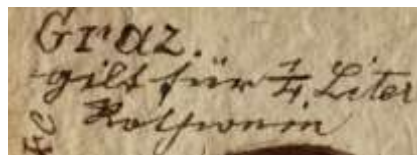 Graz.
gilt für 1/4 Liter
Rothwein